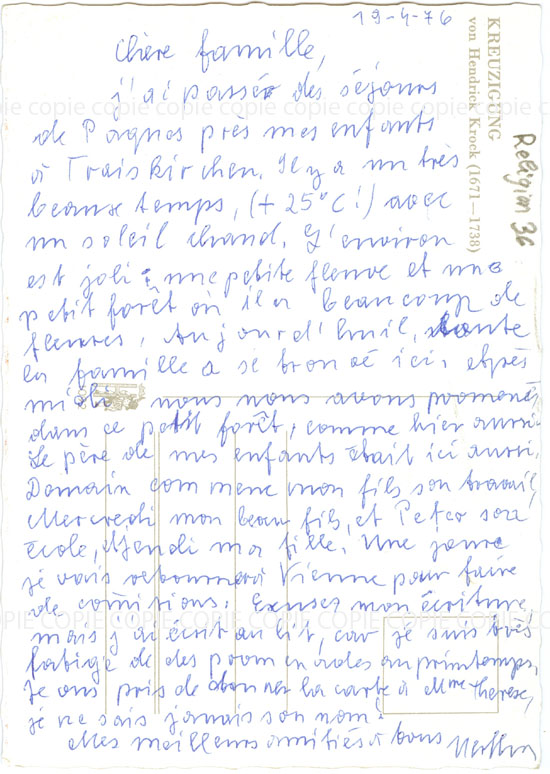 19-4-76
KREUZIGUNG
von Hendrick Krock (1671—1738)
Religion 36
Chère famille,
j'ai passée des séjours
de Paques près mes enfants
à Traiskirchen. Il y a un très
beaux temps, (+ 25°C!) avec
un soleil chaud. L'environ
est joli: une petite fleuve et une
petit forêt où il a beaucoup de
fleures. Aujourd'huil, toute
la famille a se trouvé ici. Après
midi nous nous avons promenés
dans ce petit forêt, comme hier aussi.
Le père de mes enfants était ici aussi.
Domain commence mon fils son travail,
Mercredi mon beau fils, et Peter sera
école, Jendi ma fille. Une jour
je vais retourner à Vienne pour faire
de comitions. Excusez mon écriture,
mais j'ai écrit au lit, car je suis très
fatigé de des promenades au printemps.
Je ons pris de donner la carte à Mme Therese,
je ne sais jamais son nom!
Mes meilleurs amitiés à tous
copie copie copie copie copie copie
COPIE COPIE COPIE COPIE COPIE